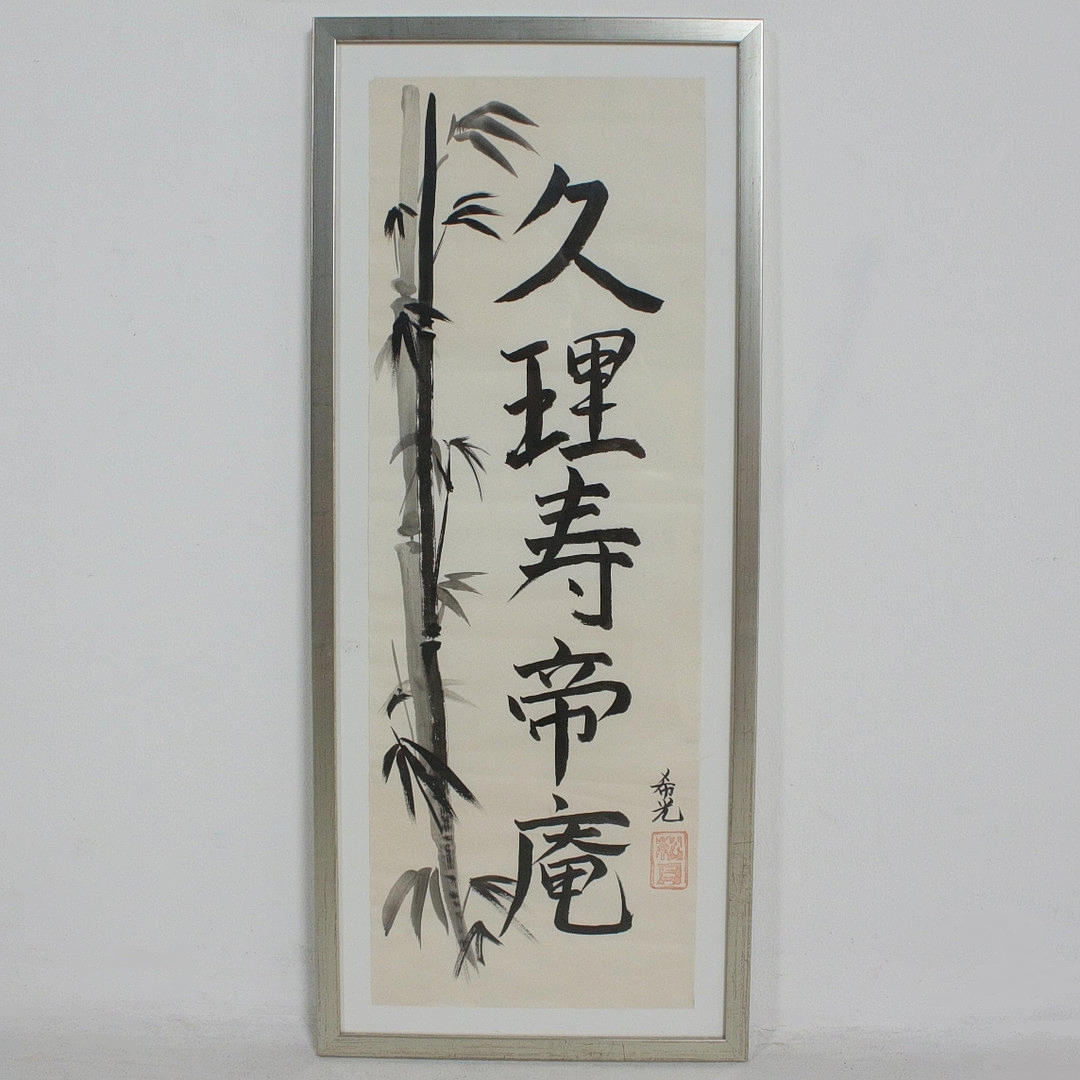 久理寿帝庵
希光